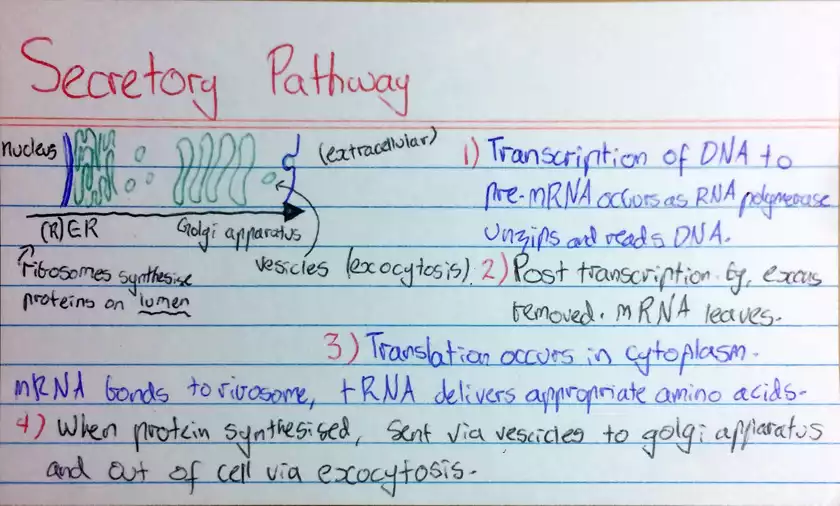 Secretory Pathway
nucleus
(extracellular)
(R)ER
Golgi apparatus
ribosomes synthesise
proteins on lumen
vesicles (exocytosis)
1) Transcription of DNA to
pre-mRNA occurs as RNA polymerase
unzips and reads DNA.
2) Post transcription. Eg, exons
removed. mRNA leaves.
3) Translation occurs in cytoplasm.
mRNA bonds to ribosome, tRNA delivers appropriate amino acids.
4) When protein synthesised, sent via vescicles to golgi apparatus
and out of cell via exocytosis.